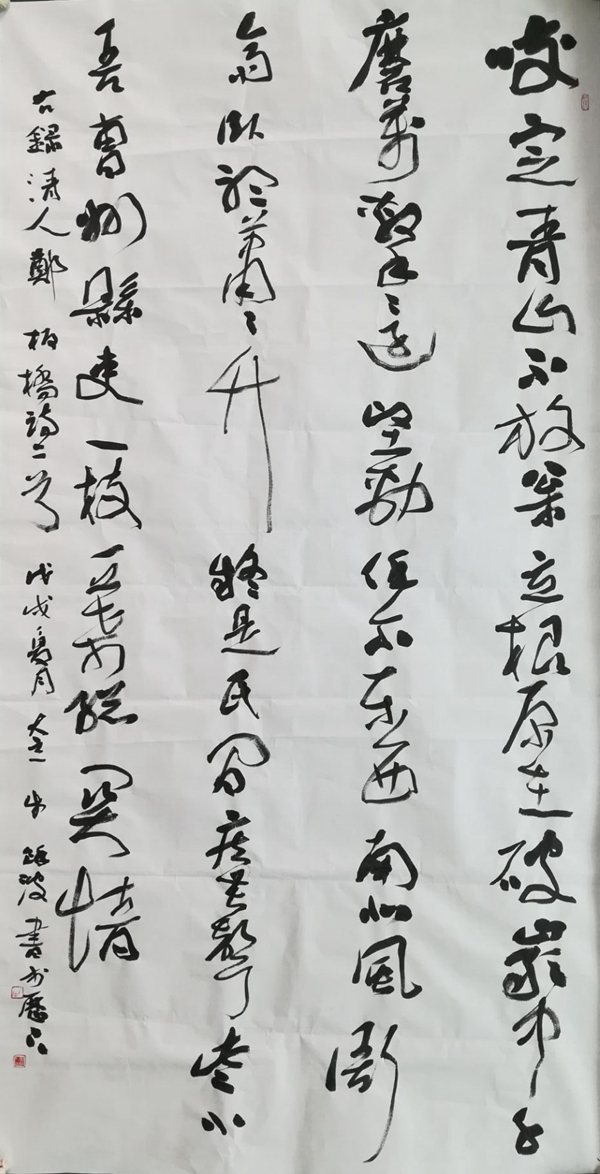 咬定青山不放枩立根原在破巖中千
磨萬擊還堅勁任尔東西南北風衙
齋臥聽蕭〻竹疑是民間疾苦聲些小
吾曹州縣吏一枝一葉總關情
右錄清人鄭板橋詩二首 戊戌夏月 牛 波書於歷下